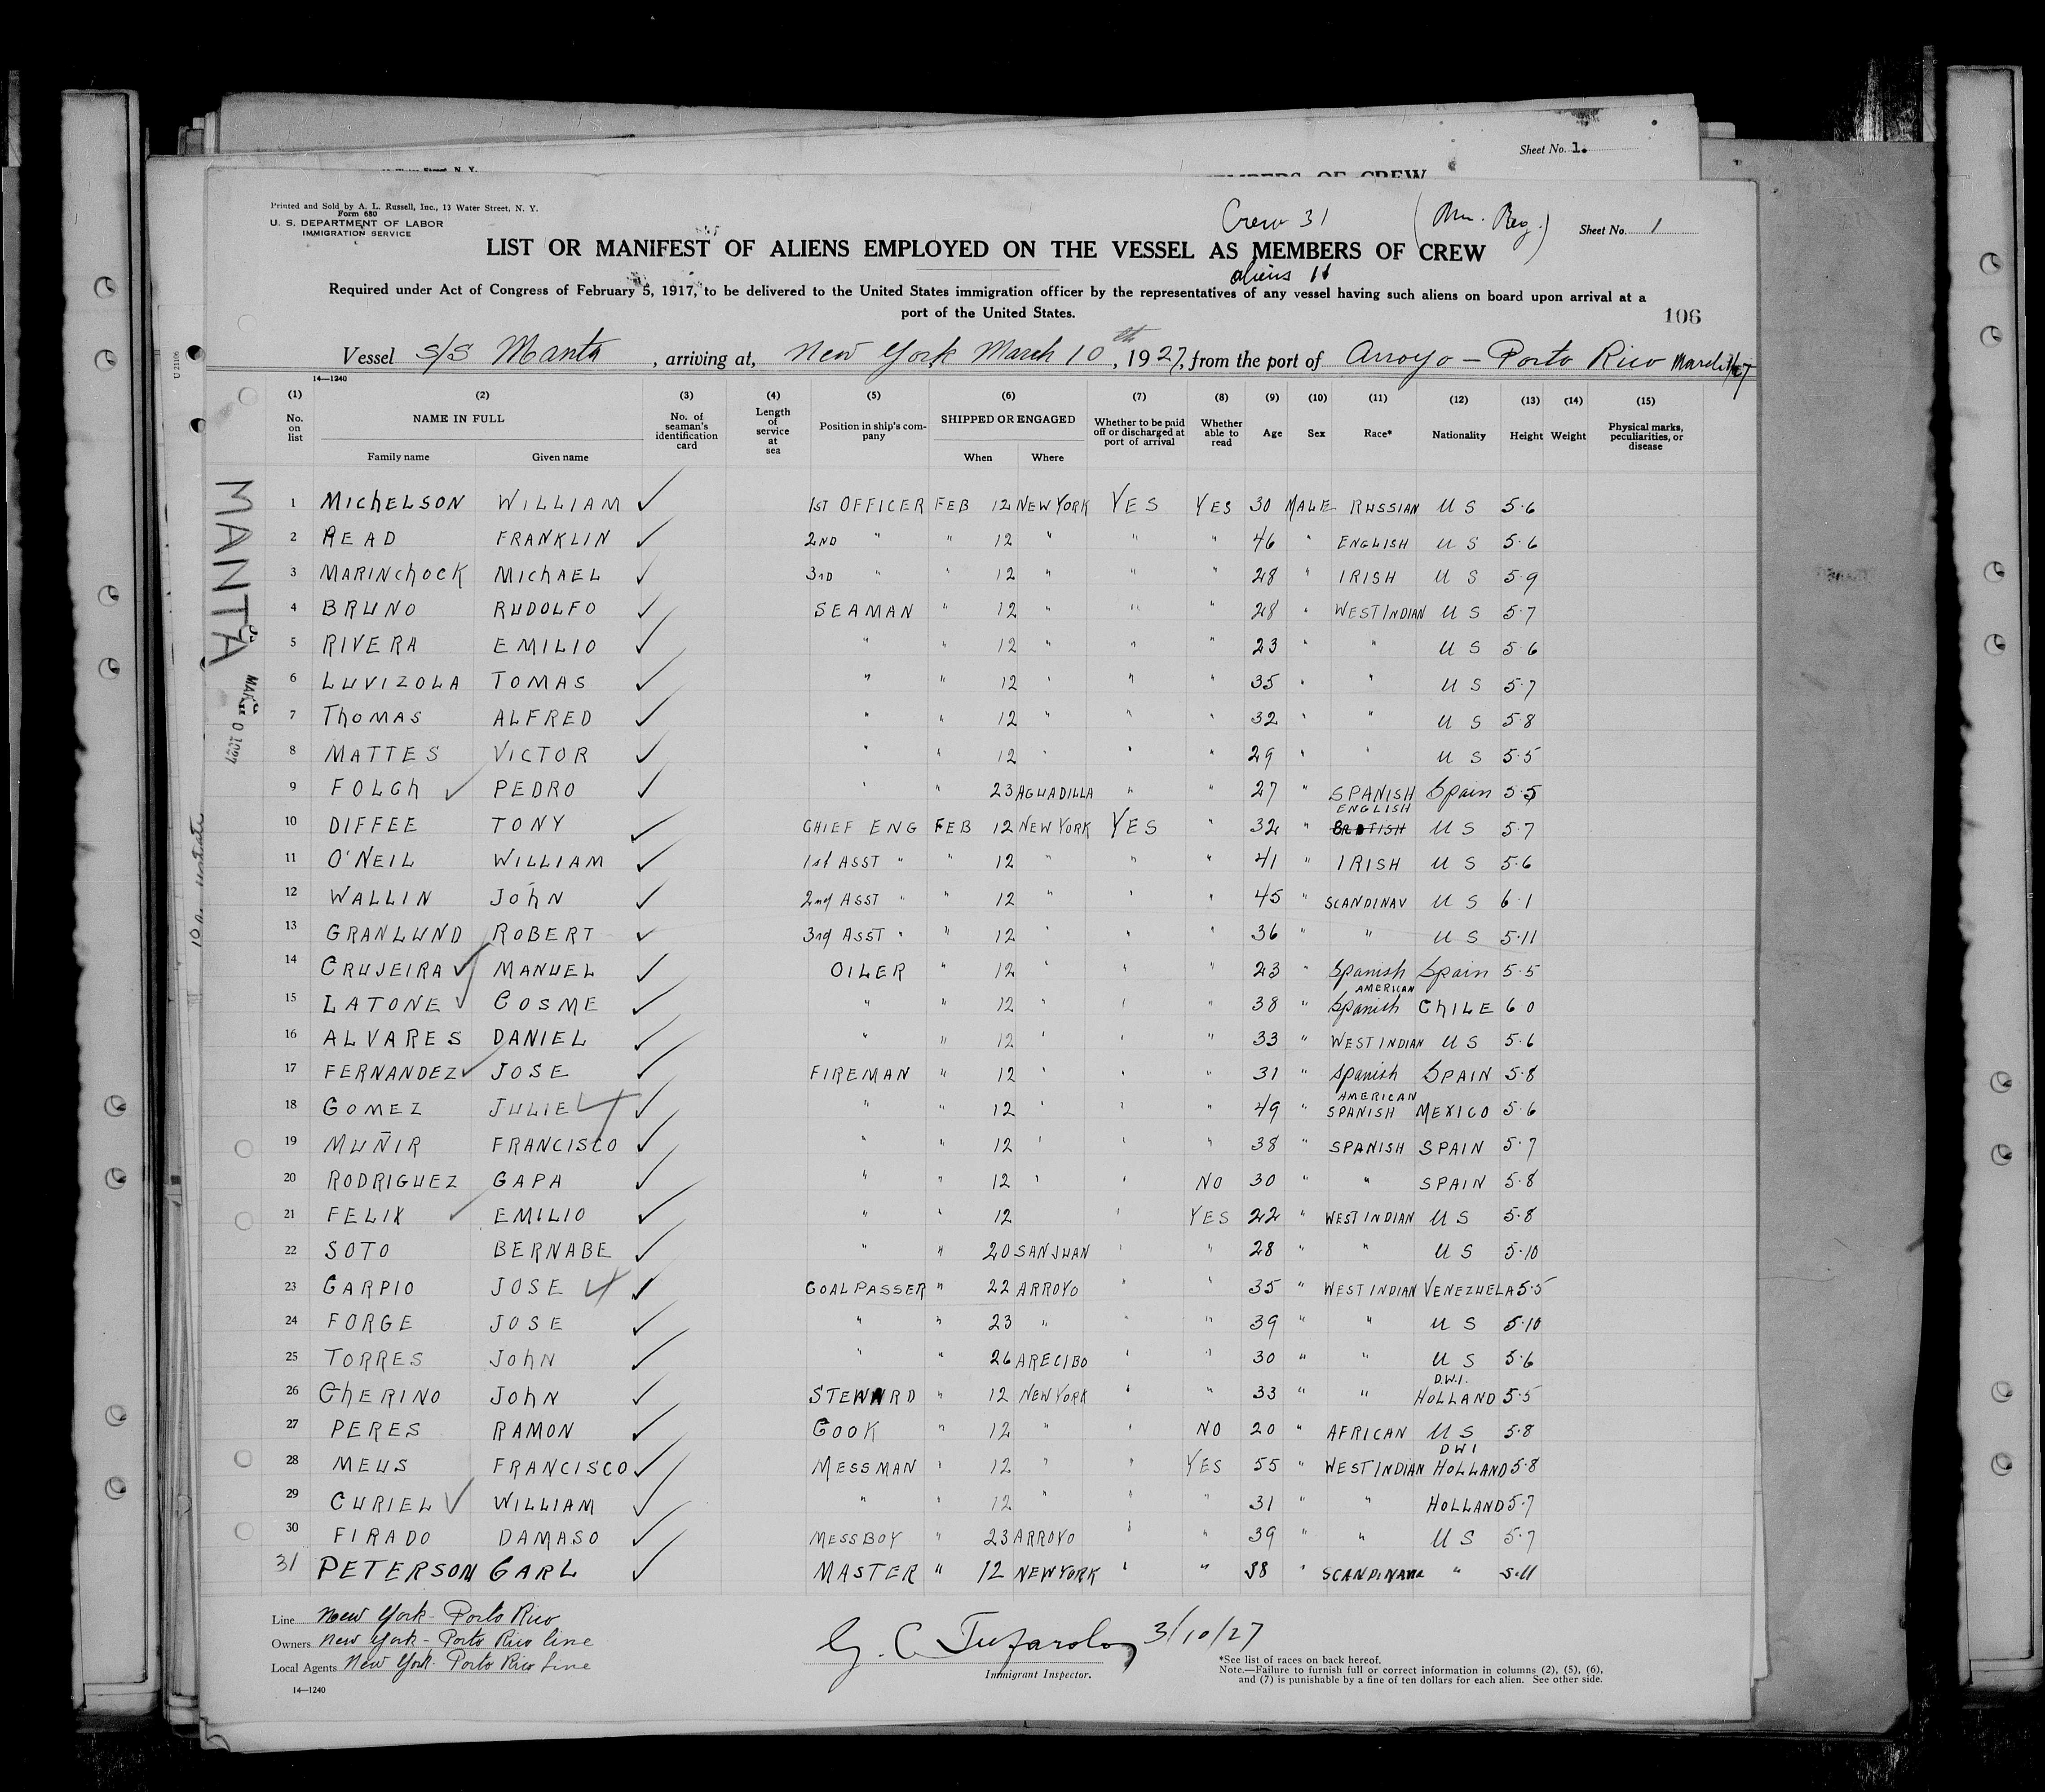 Sheet No. 1.
MEMBERS OF CREW
Printed and Sold by A. L. Russell, Inc., 13 Water Street, N. Y.
Form 680
U. S. DEPARTMENT OF LABOR
IMMIGRATION SERVICE
Crew 31
Sheet No. 1
LIST OR MANIFEST OF ALIENS EMPLOYED ON THE VESSEL AS MEMBERS OF CREW
aliens 11
Required under Act of Congress of February 5, 1917, to be delivered to the United States immigration officer by the representatives of any vessel having such aliens on board upon arrival at a
port of the United States.
106
Vessel S/S Manta, arriving at, New York March 10th, 1927, from the port of Arroyo - Porto Rico March
14—1240
(1) (2) (3) (4) (5) (6) (7) (8) (9) (10) (11) (12) (13) (14) (15)
No. on list NAME IN FULL Family name Given name No. of seaman's identification card Length of service at sea Position in ship's company SHIPPED OR ENGAGED When Where Whether to be paid off or discharged at port of arrival Whether able to read Age Sex Race* Nationality Height Weight Physical marks, peculiarities, or disease
MANTA
U 21106
1 MICHELSON WILLIAM ✓ 1ST OFFICER FEB 12 NEW YORK YES YES 30 MALE RUSSIAN U S 5·6
2 READ FRANKLIN ✓ 2ND " " 12 " " " 46 " ENGLISH U S 5·6
3 MARINCHOCK MICHAEL ✓ 3RD " " 12 " " " 28 " IRISH U S 5·9
4 BRUNO RUDOLFO ✓ SEAMAN " 12 " " " 28 " WEST INDIAN U S 5·7
5 RIVERA EMILIO ✓ " " 12 " " " 23 " " U S 5·6
6 LUVIZOLA TOMAS ✓ " " 12 " " " 35 " " U S 5·7
7 THOMAS ALFRED ✓ " " 12 " " " 32 " " U S 5·8
8 MATTES VICTOR ✓ " " 12 " " " 29 " " U S 5·5
9 FOLCH ✓ PEDRO ✓ " " 23 AGUADILLA " " 27 " SPANISH Spain 5·5
10 DIFFEE TONY ✓ CHIEF ENG FEB 12 NEW YORK YES " 32 " ENGLISH BRITISH U S 5·7
11 O'NEIL WILLIAM ✓ 1st ASST " " 12 " " " 41 " IRISH U S 5·6
12 WALLIN JOHN ✓ 2nd ASST " " 12 " " " 45 " SCANDINAV U S 6·1
13 GRANLUND ROBERT ✓ 3rd ASST " " 12 " " " 36 " " U S 5·11
14 CRUJEIRA ✓ MANUEL ✓ OILER " 12 " " " 23 " Spanish Spain 5·5
15 LATONE ✓ COSME ✓ " " 12 " " " 38 " Spanish AMERICAN CHILE 6 0
16 ALVARES DANIEL ✓ " " 12 " " " 33 " WEST INDIAN U S 5·6
17 FERNANDEZ ✓ JOSE ✓ FIREMAN " 12 " " " 31 " Spanish SPAIN 5·8
18 GOMEZ JULIE ✓ " " 12 " " " 49 " SPANISH AMERICAN MEXICO 5·6
19 MUÑIR FRANCISCO ✓ " " 12 " " " 38 " SPANISH SPAIN 5·7
20 RODRIGUEZ GAPA ✓ " " 12 " " NO 30 " " SPAIN 5·8
21 FELIX EMILIO ✓ " " 12 " YES 22 " WEST INDIAN U S 5·8
22 SOTO BERNABE ✓ " " 20 SAN JUAN " " 28 " " U S 5·10
23 CARPIO JOSE ✓ COALPASSER " 22 ARROYO " " 35 " WEST INDIAN VENEZUELA 5·5
24 FORGE JOSE ✓ " " 23 " " " 39 " " U S 5·10
25 TORRES JOHN ✓ " " 26 ARECIBO " " 30 " " U S 5·6
26 CHERINO JOHN ✓ STEWARD " 12 NEW YORK " " 33 " " D.W.I. HOLLAND 5·5
27 PERES RAMON ✓ COOK " 12 " " NO 20 " AFRICAN U S 5·8
28 MEUS FRANCISCO ✓ MESSMAN " 12 " " YES 55 " WEST INDIAN D W I HOLLAND 5·8
29 CURIEL ✓ WILLIAM ✓ " " 12 " " " 31 " " HOLLAND 5·7
30 FIRADO DAMASO ✓ MESSBOY " 23 ARROYO " " 39 " " U S 5·7
31 PETERSON CARL ✓ MASTER " 12 NEW YORK " " 38 " SCANDINAVIA " 5·11
Line New York - Porto Rico
Owners New York - Porto Rico Line
Local Agents New York Porto Rico Line
3/10/27
Immigrant Inspector.
*See list of races on back hereof.
Note.—Failure to furnish full or correct information in columns (2), (5), (6),
and (7) is punishable by a fine of ten dollars for each alien. See other side.
14—1240